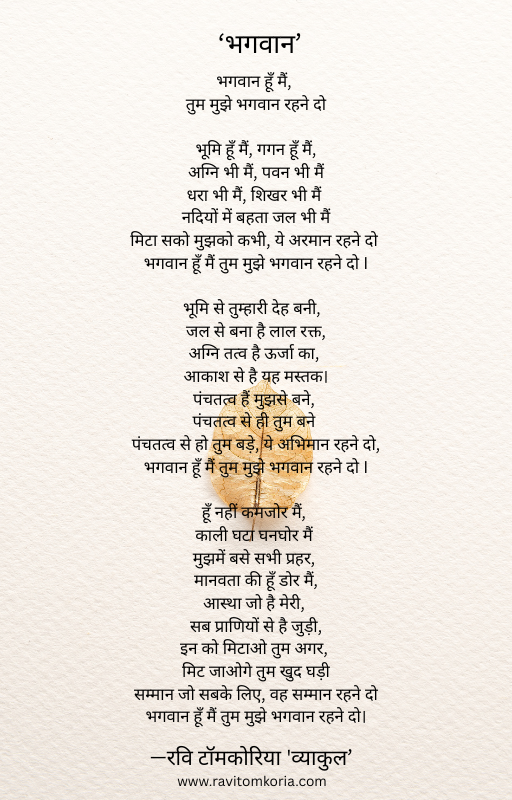 ‘भगवान’
भगवान हूँ मैं,
तुम मुझे भगवान रहने दो
भूमि हूँ मैं, गगन हूँ मैं,
अग्नि भी मैं, पवन भी मैं
धरा भी मैं, शिखर भी मैं
नदियों में बहता जल भी मैं
मिटा सको मुझको कभी, ये अरमान रहने दो
भगवान हूँ मैं तुम मुझे भगवान रहने दो l
भूमि से तुम्हारी देह बनी,
जल से बना है लाल रक्त,
अग्नि तत्व है ऊर्जा का,
आकाश से है यह मस्तक।
पंचतत्व हैं मुझसे बने,
पंचतत्व से ही तुम बने
पंचतत्व से हो तुम बड़े, ये अभिमान रहने दो,
भगवान हूँ मैं तुम मुझे भगवान रहने दो l
हूँ नहीं कमजोर मैं,
काली घटा घनघोर मैं
मुझमें बसे सभी प्रहर,
मानवता की हूँ डोर मैं,
आस्था जो है मेरी,
सब प्राणियों से है जुड़ी,
इन को मिटाओ तुम अगर,
मिट जाओगे तुम खुद घड़ी
सम्मान जो सबके लिए, वह सम्मान रहने दो
भगवान हूँ मैं तुम मुझे भगवान रहने दो।
—रवि टॉमकोरिया 'व्याकुल’
www.ravitomkoria.com